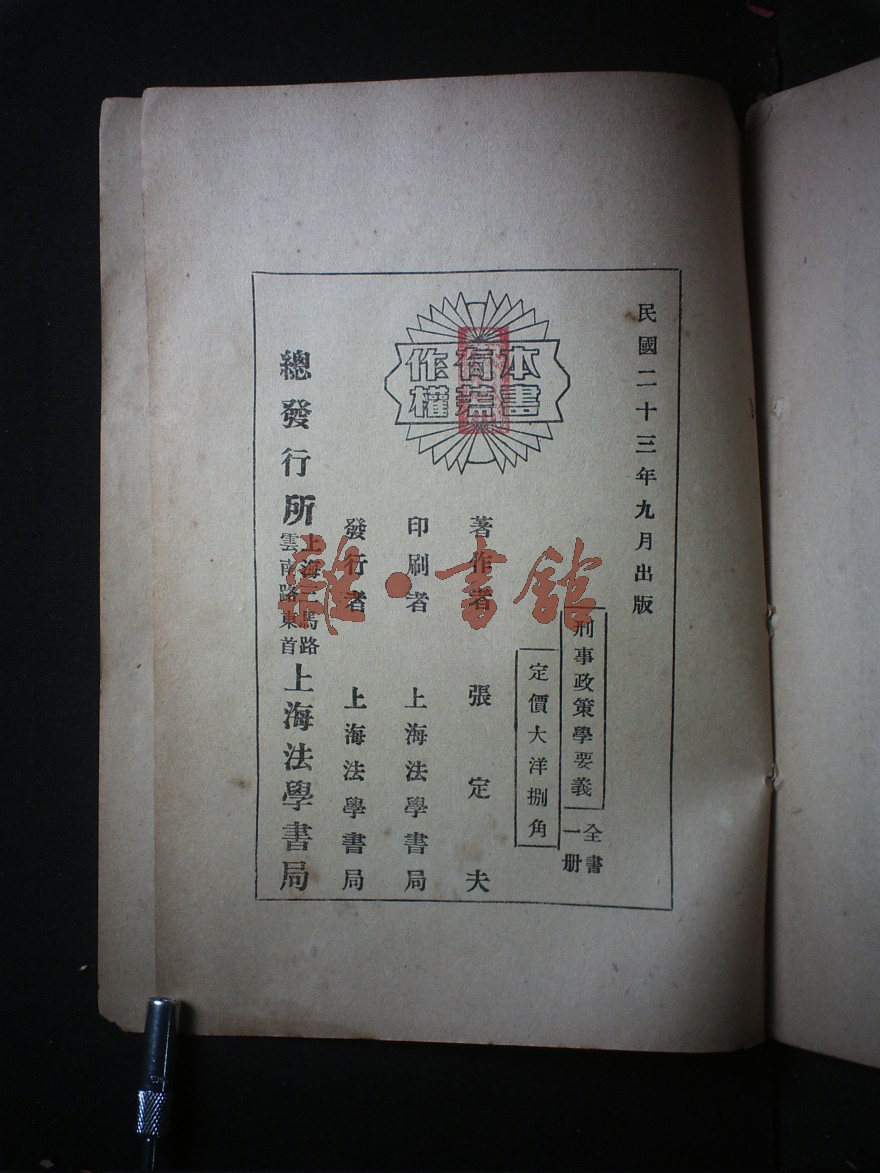 民國二十三年九月出版
刑事政策學要義
全書
一册
定價大洋捌角
本書
有著
作權
著作者 張定夫
印刷者 上海法學書局
發行者 上海法學書局
總發行所
上海二馬路
雲南路東首
上海法學書局
雜·書館